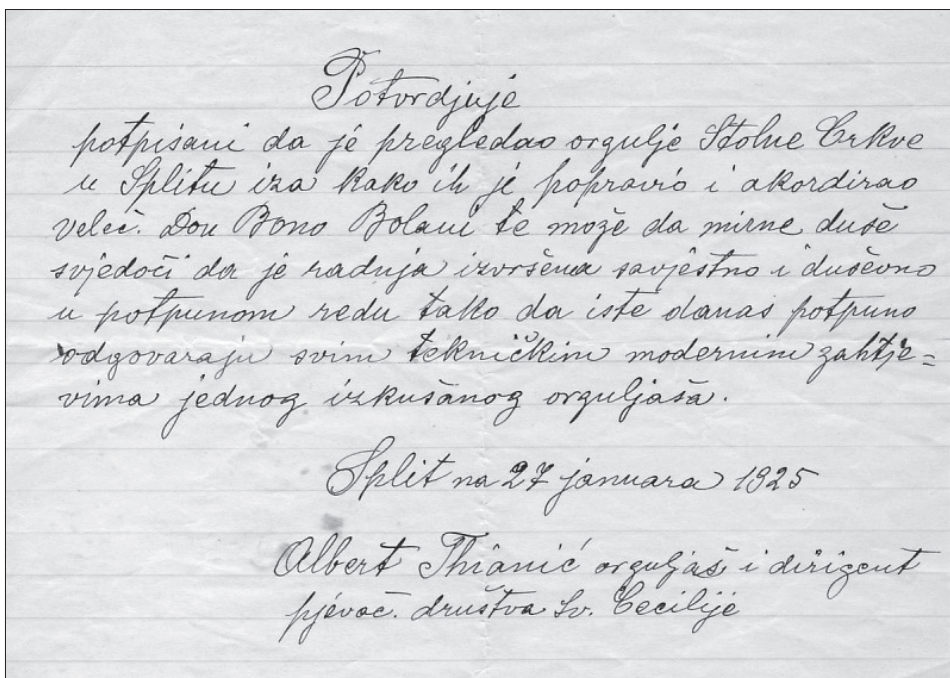 Potvrdjuje
potpisani da je pregledao orgulje Stolne Crkve
u Splitu iza kako ih je popravio i akordirao
veleč. Don Bono Bolani te može da mirne duše
svjedoči da je radnja izvršena savjestno i duševno
u potpunom redu tako da iste danas potpuno
odgovaraju svim tekničkim modernim zahtje=
vima jednog izkušanog orguljaša.
Split na 27 januara 1925
Albert Thianić orguljaš i dirigent
pjevač. društva Sv. Cecilije